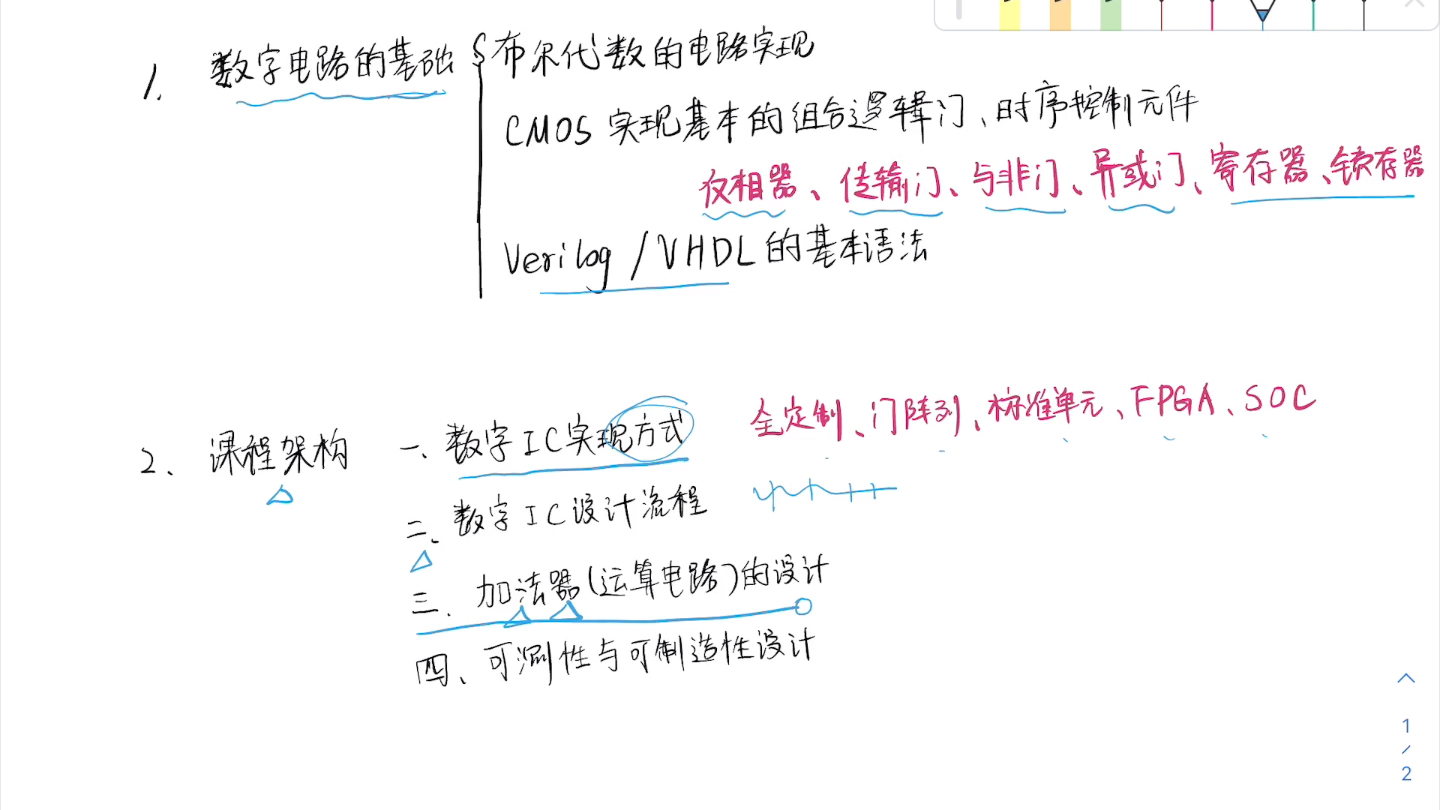 1. 数字电路的基础 { 布尔代数的电路实现
CMOS 实现基本的组合逻辑门、时序控制元件
反相器、传输门、与非门、异或门、寄存器、锁存器
Verilog / VHDL 的基本语法
2、课程架构 一、数字IC实现方式 全定制、门阵列、标准单元、FPGA、SOC
二、数字IC设计流程
三、加法器(运算电路)的设计
四、可测性与可制造性设计
1
/
2